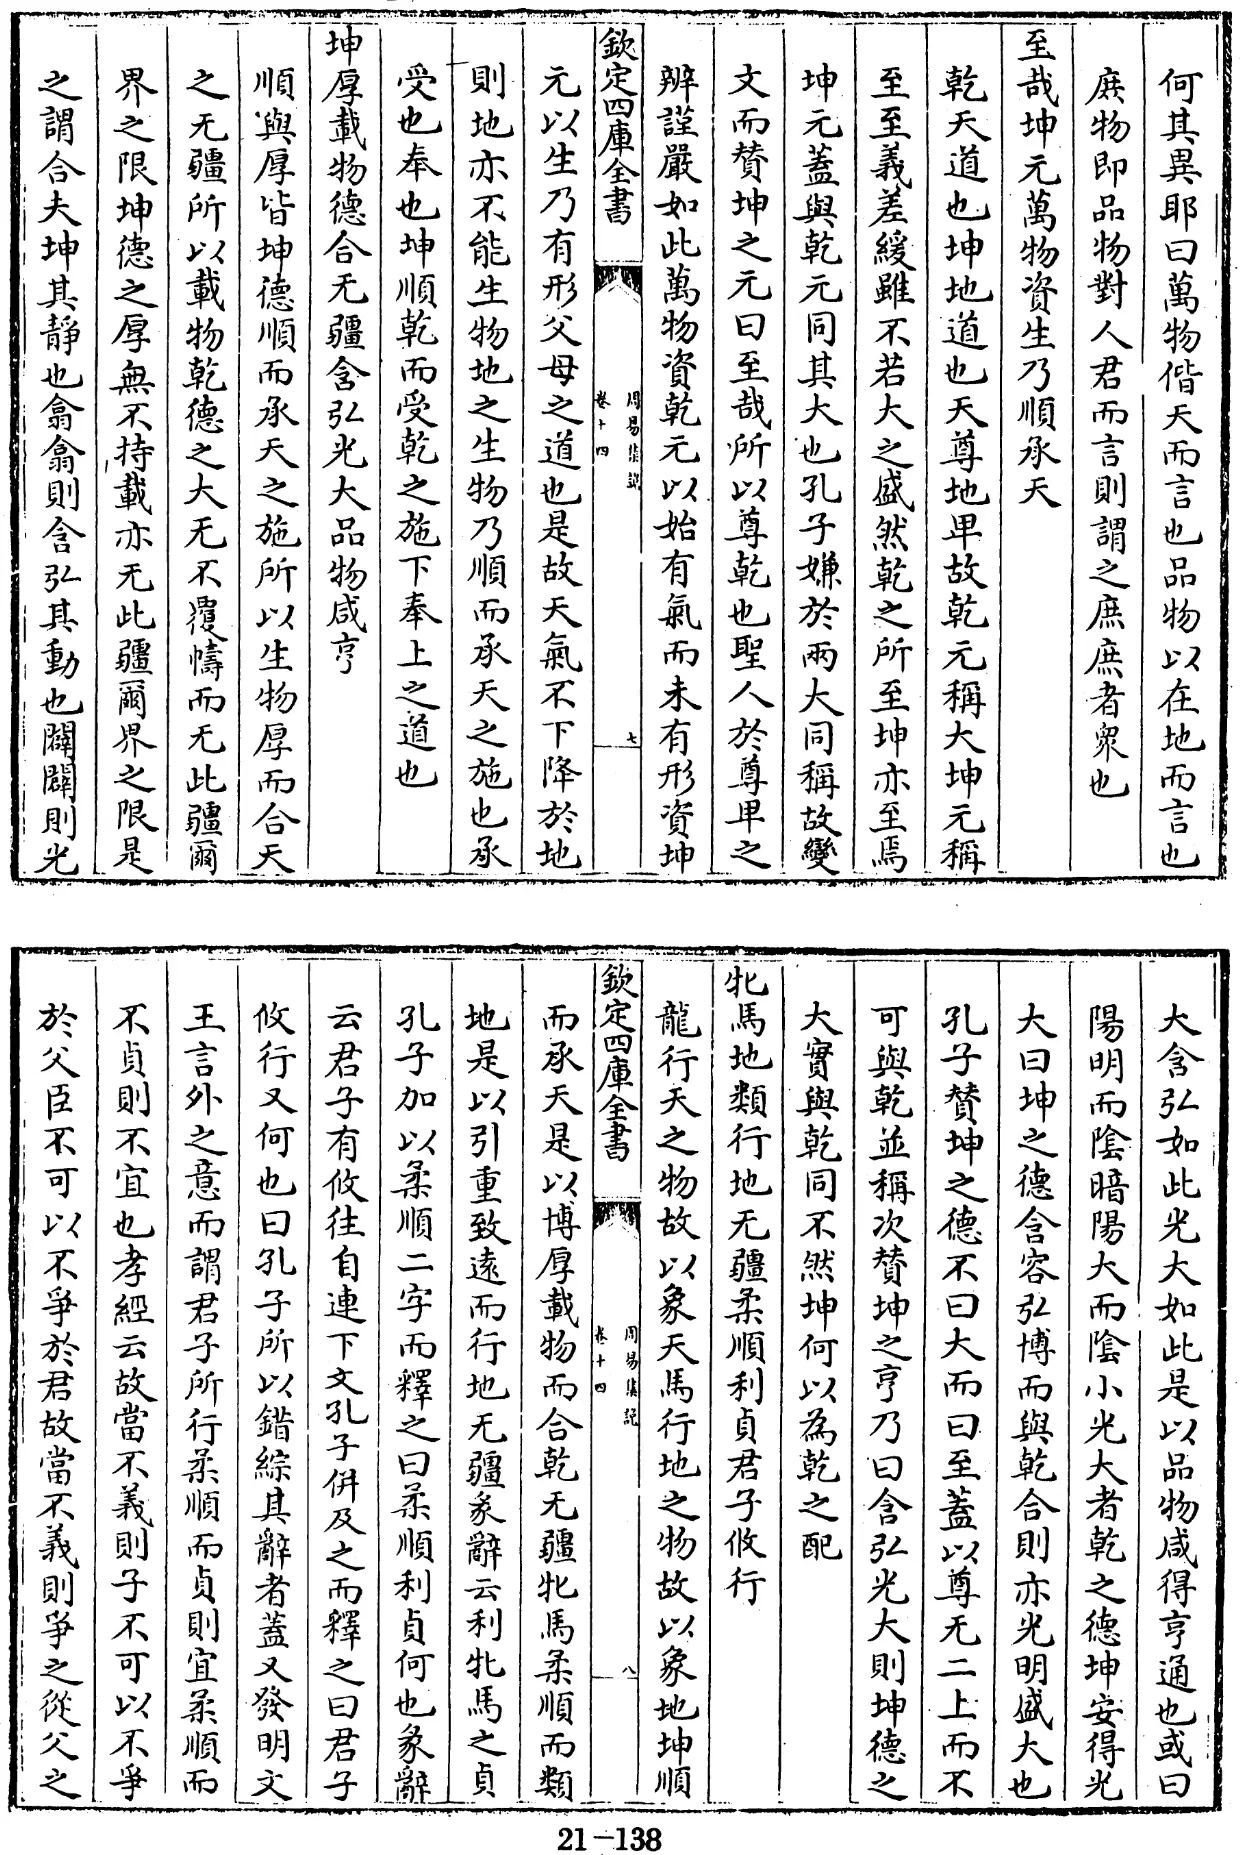 何其異耶曰萬物偕天而言也品物以在地而言也
庶物即品物對人君而言則謂之庶庶者衆也
至哉坤元萬物資生乃順承天
乾天道也坤地道也天尊地卑故乾元稱大坤元稱
至至義差緩雖不若大之盛然乾之所至坤亦至焉
坤元蓋與乾元同其大也孔子嫌於兩大同稱故變
文而賛坤之元曰至哉所以尊乾也聖人於尊卑之
辨謹嚴如此萬物資乾元以始有氣而未有形資坤
欽定四庫全書
周易集説
卷十四
七
元以生乃有形父母之道也是故天氣不下降於地
則地亦不能生物地之生物乃順而承天之施也承
受也奉也坤順乾而受乾之施下奉上之道也
坤厚載物德合无疆含弘光大品物咸亨
順與厚皆坤德順而承天之施所以生物厚而合天
之无疆所以載物乾德之大无不覆幬而无此疆爾
界之限坤德之厚無不持載亦无此疆爾界之限是
之謂合夫坤其靜也翕翕則含弘其動也闢闢則光
大含弘如此光大如此是以品物咸得亨通也或曰
陽明而陰暗陽大而陰小光大者乾之德坤安得光
大曰坤之德含容弘博而與乾合則亦光明盛大也
孔子賛坤之德不曰大而曰至蓋以尊无二上而不
可與乾並稱次賛坤之亨乃曰含弘光大則坤德之
大實與乾同不然坤何以為乾之配
牝馬地類行地无疆柔順利貞君子攸行
龍行天之物故以象天馬行地之物故以象地坤順
欽定四庫全書
周易集説
卷十四
八
而承天是以博厚載物而合乾无疆牝馬柔順而類
地是以引重致遠而行地无疆彖辭云利牝馬之貞
孔子加以柔順二字而釋之曰柔順利貞何也彖辭
云君子有攸往自連下文孔子併及之而釋之曰君子
攸行又何也曰孔子所以錯綜其辭者蓋又發明文
王言外之意而謂君子所行柔順而貞則宜柔順而
不貞則不宜也孝經云故當不義則子不可以不爭
於父臣不可以不爭於君故當不義則爭之從父之
21-138